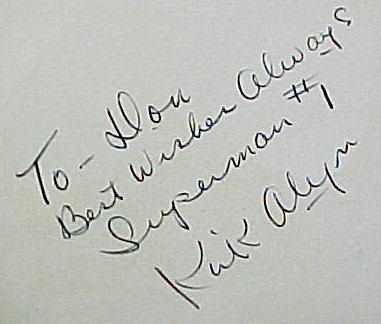 To - Don
Best Wishes Always
Superman #1
Kirk Alyn